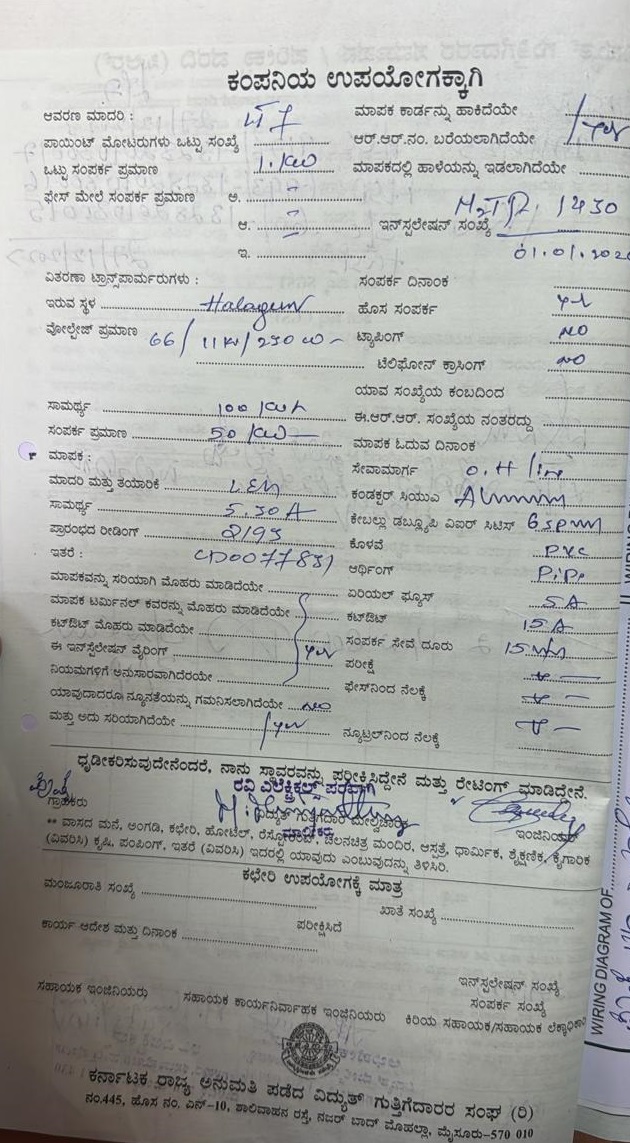 ಕಂಪನಿಯ ಉಪಯೋಗಕ್ಕಾಗಿ
ಆವರಣ ಮಾದರಿ : ಮಾಪಕ ಕಾರ್ಡನ್ನು ಹಾಕಿದೆಯೇ
ಪಾಯಿಂಟ್ ಮೋಟರುಗಳು ಒಟ್ಟು ಸಂಖ್ಯೆ ಆರ್.ಆರ್.ನಂ. ಬರೆಯಲಾಗಿದೆಯೇ yes
ಒಟ್ಟು ಸಂಪರ್ಕ ಪ್ರಮಾಣ 1. KW ಮಾಪಕದಲ್ಲಿ ಹಾಳೆಯನ್ನು ಇಡಲಾಗಿದೆಯೇ
ಫೇಸ್ ಮೇಲೆ ಸಂಪರ್ಕ ಪ್ರಮಾಣ ಅ.
ಆ. ಇನ್‌ಸ್ಟಲೇಷನ್ ಸಂಖ್ಯೆ 1430
ಇ. 01.01.202
ವಿತರಣಾ ಟ್ರಾನ್ಸ್‌ಪಾರ್ಮರುಗಳು : ಸಂಪರ್ಕ ದಿನಾಂಕ
ಇರುವ ಸ್ಥಳ ಹೊಸ ಸಂಪರ್ಕ yes
ವೋಲ್ಟೇಜ್ ಪ್ರಮಾಣ 66/11KV/250 ಟ್ಯಾಪಿಂಗ್ NO
ಟೆಲಿಫೋನ್ ಕ್ರಾಸಿಂಗ್ NO
ಯಾವ ಸಂಖ್ಯೆಯ ಕಂಬದಿಂದ
ಸಾಮರ್ಥ್ಯ 100 ಈ.ಆರ್.ಆರ್. ಸಂಖ್ಯೆಯ ನಂತರದ್ದು
ಸಂಪರ್ಕ ಪ್ರಮಾಣ 50 KW ಮಾಪಕ ಓದುವ ದಿನಾಂಕ
ಮಾಪಕ : ಸೇವಾಮಾರ್ಗ O.H line
ಮಾದರಿ ಮತ್ತು ತಯಾರಿಕೆ ಕಂಡಕ್ಟರ್ ಸಿಯುಎ
ಸಾಮರ್ಥ್ಯ 5.30A ಕೇಬಲ್ಲು ಡಬ್ಲ್ಯೂಪಿ ವಿಐರ್ ಸಿಟಿಸ್
ಪ್ರಾರಂಭದ ರೀಡಿಂಗ್ ಕೊಳವೆ PVC
ಇತರೆ : ಆರ್ಥಿಂಗ್ PiPe
ಮಾಪಕವನ್ನು ಸರಿಯಾಗಿ ಮೊಹರು ಮಾಡಿದೆಯೇ ಏರಿಯಲ್ ಫ್ಯೂಸ್ 5A
ಮಾಪಕ ಟರ್ಮಿನಲ್ ಕವರನ್ನು ಮೊಹರು ಮಾಡಿದೆಯೇ ಕಟ್‌ಔಟ್ 15A
ಕಟ್‌ಔಟ್ ಮೊಹರು ಮಾಡಿದೆಯೇ ಸಂಪರ್ಕ ಸೇವೆ ದೂರು
ಈ ಇನ್‌ಸ್ಟಲೇಷನ್ ವೈರಿಂಗ್ yes ಪರೀಕ್ಷೆ
ನಿಯಮಗಳಿಗೆ ಅನುಸಾರವಾಗಿದೆರಯೇ ಫೇಸ್‌ನಿಂದ ನೆಲಕ್ಕೆ
ಯಾವುದಾದರೂ ನ್ಯೂನತೆಯನ್ನು ಗಮನಿಸಲಾಗಿದೆಯೇ NO
ಮತ್ತು ಅದು ಸರಿಯಾಗಿದೆಯೇ yes ನ್ಯೂಟ್ರಲ್‌ನಿಂದ ನೆಲಕ್ಕೆ
ಧೃಡೀಕರಿಸುವುದೇನೆಂದರೆ, ನಾನು ಸ್ಥಾವರವನ್ನು ಪರೀಕ್ಷಿಸಿದ್ದೇನೆ ಮತ್ತು ರೇಟಿಂಗ್ ಮಾಡಿದ್ದೇನೆ.
ರವಿ ಎಲೆಕ್ಟ್ರಿಕಲ್ಸ್ ಪರವಾಗಿ
ಗ್ರಾಹಕರು ವಿದ್ಯುತ್ ಗುತ್ತಿಗೆದಾರ ಮೇಲ್ವಿಚಾರಕ ಇಂಜಿನಿಯರ್
ಮಾಲೀಕರು
** ವಾಸದ ಮನೆ, ಅಂಗಡಿ, ಕಛೇರಿ, ಹೋಟೆಲ್, ರೆಸ್ಟೋರೆಂಟ್, ಚಲನಚಿತ್ರ ಮಂದಿರ, ಆಸ್ಪತ್ರೆ, ಧಾರ್ಮಿಕ, ಶೈಕ್ಷಣಿಕ, ಕೈಗಾರಿಕ
(ವಿವರಿಸಿ) ಕೃಷಿ, ಪಂಪಿಂಗ್, ಇತರೆ (ವಿವರಿಸಿ) ಇದರಲ್ಲಿ ಯಾವುದು ಎಂಬುವುದನ್ನು ತಿಳಿಸಿರಿ.
ಕಛೇರಿ ಉಪಯೋಗಕ್ಕೆ ಮಾತ್ರ
ಮಂಜೂರಾತಿ ಸಂಖ್ಯೆ ಖಾತೆ ಸಂಖ್ಯೆ
ಕಾರ್ಯ ಆದೇಶ ಮತ್ತು ದಿನಾಂಕ ಪರೀಕ್ಷಿಸಿದೆ
ಇನ್‌ಸ್ಟಲೇಷನ್ ಸಂಖ್ಯೆ
ಸಂಪರ್ಕ ಸಂಖ್ಯೆ
ಸಹಾಯಕ ಇಂಜಿನಿಯರು ಸಹಾಯಕ ಕಾರ್ಯನಿರ್ವಾಹಕ ಇಂಜಿನಿಯರು ಕಿರಿಯ ಸಹಾಯಕ/ಸಹಾಯಕ ಲೆಕ್ಕಾಧಿಕಾರಿ
ಕರ್ನಾಟಕ ರಾಜ್ಯ ಅನುಮತಿ ಪಡೆದ ವಿದ್ಯುತ್ ಗುತ್ತಿಗೆದಾರರ ಸಂಘ (ರಿ)
ನಂ.445, ಹೊಸ ನಂ. ಎನ್-10, ಶಾಲಿವಾಹನ ರಸ್ತೆ, ನಜರ್ ಬಾದ್ ಮೊಹಲ್ಲಾ, ಮೈಸೂರು-570 010
WIRING DIAGRAM OF